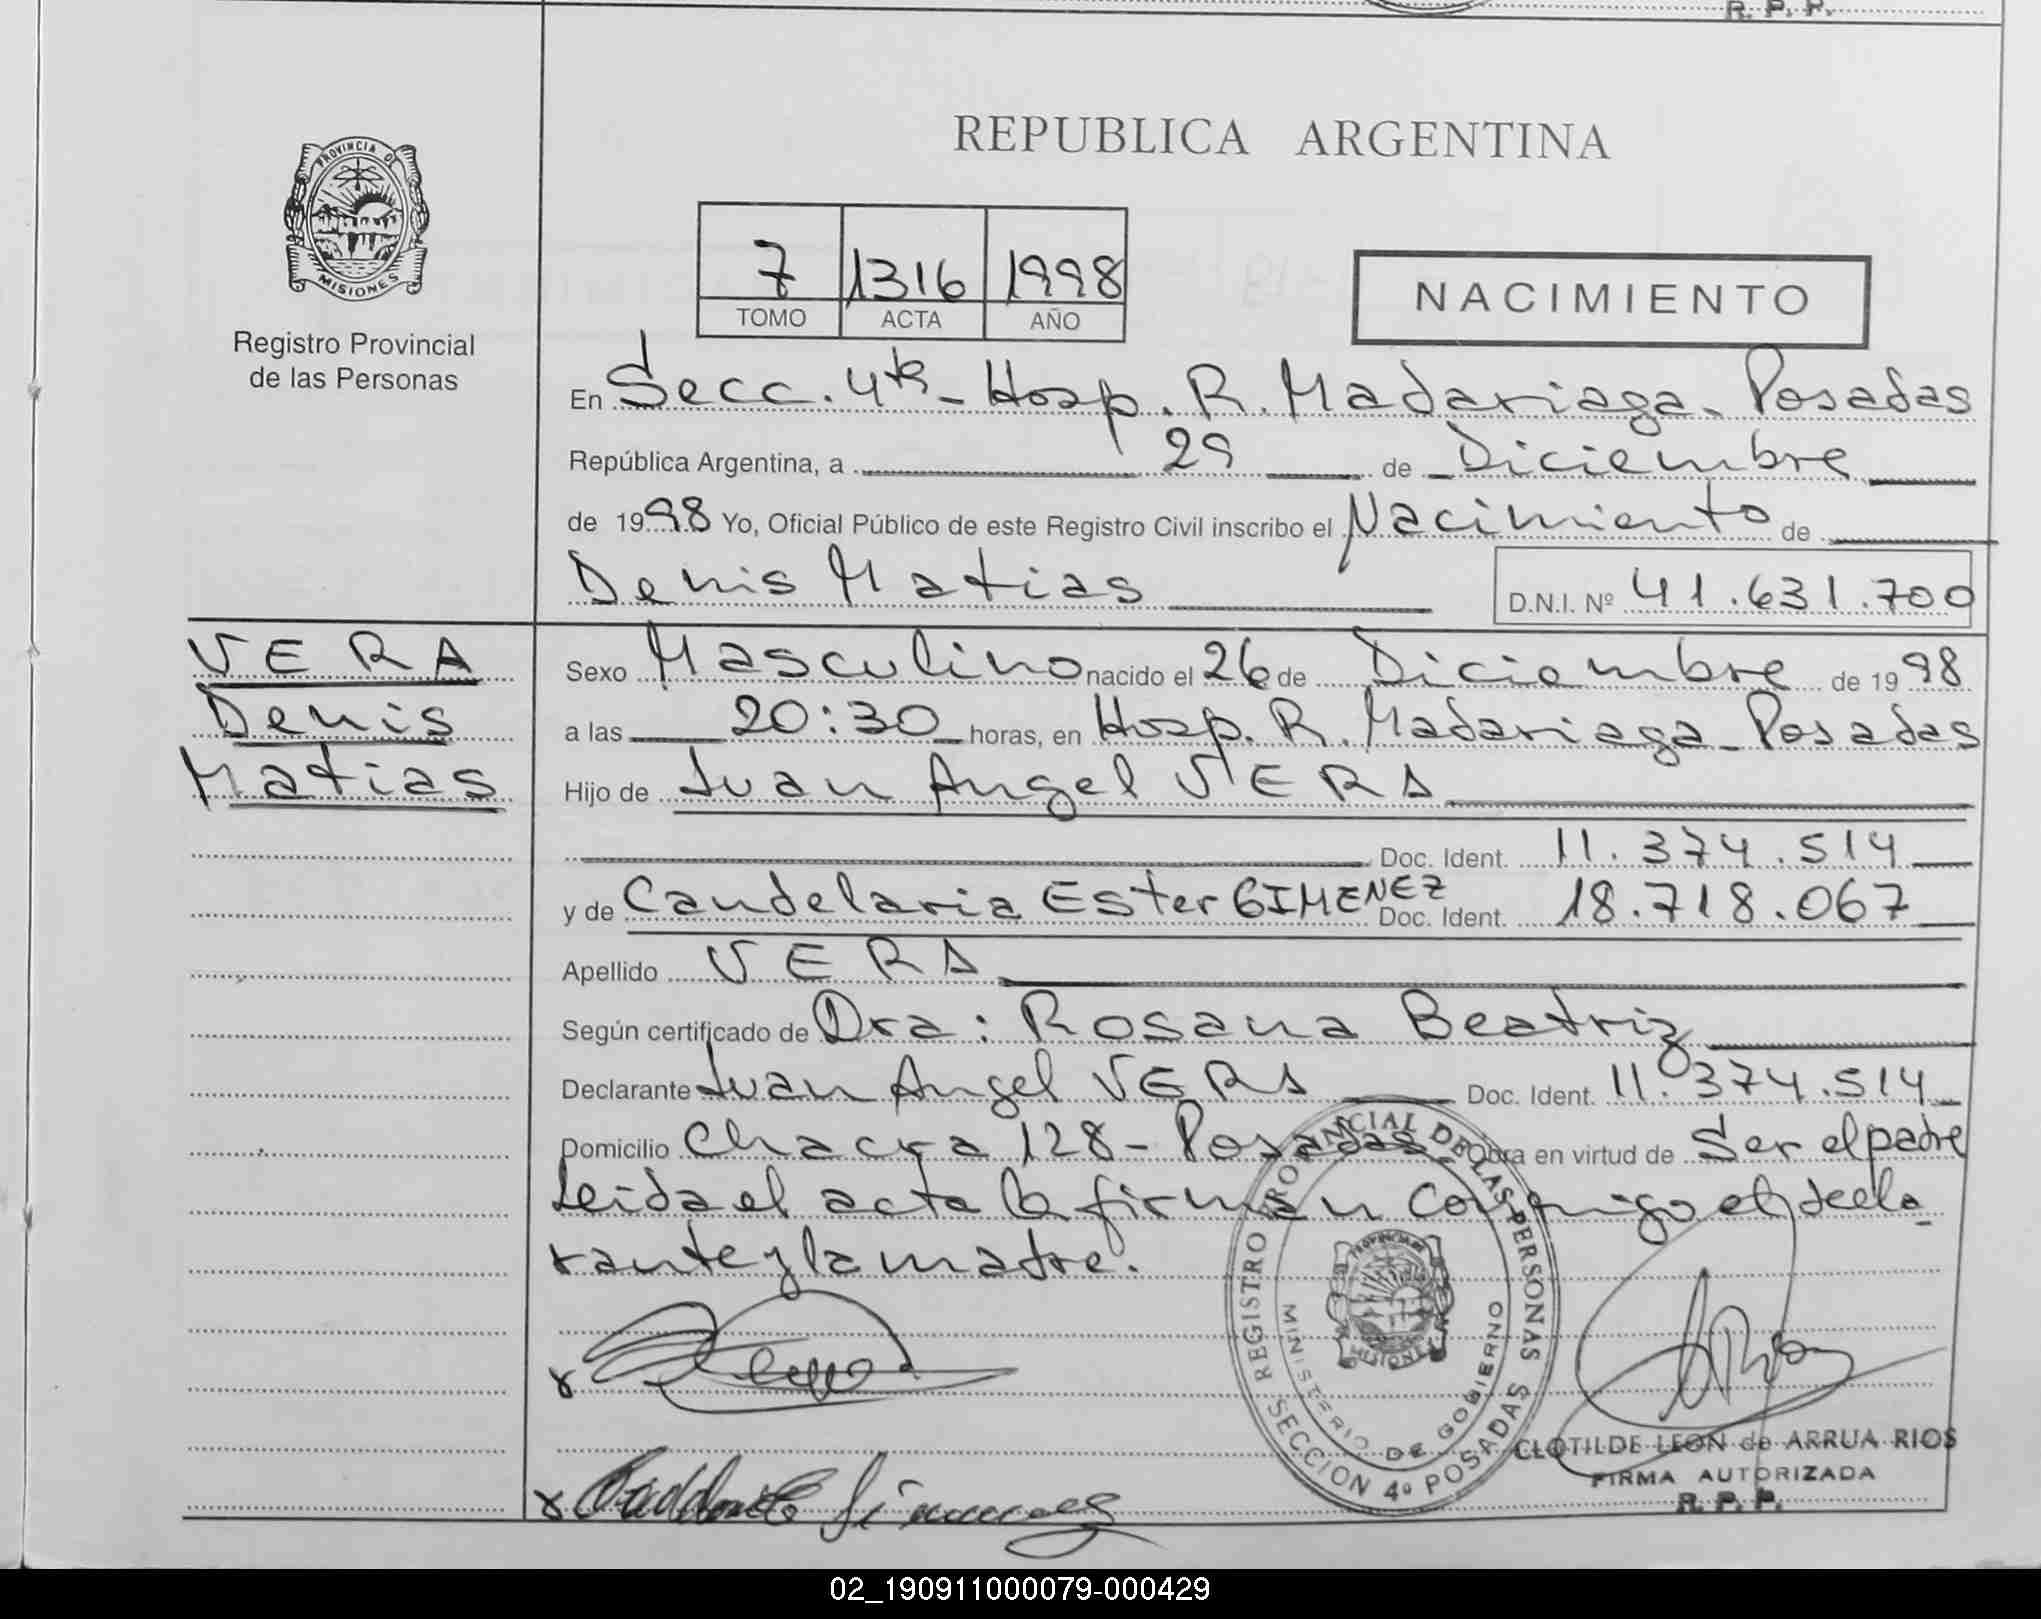 R. P. P.
REPUBLICA ARGENTINA
PROVINCIA DE
MISIONES
Registro Provincial
de las Personas
7 1316 1998
TOMO ACTA AÑO
NACIMIENTO
En Secc. 4ta - Hosp. R. Madariaga - Posadas
República Argentina, a 29 de Diciembre
de 1998 Yo, Oficial Público de este Registro Civil inscribo el Nacimiento de
Denis Matias D.N.I. Nº 41.631.700
VERA
Denis
Matias
Sexo Masculino nacido el 26 de Diciembre de 1998
a las 20:30 horas, en Hosp. R. Madariaga - Posadas
Hijo de Juan Angel VERA
Doc. Ident. 11.374.514
y de Candelaria Ester GIMENEZ Doc. Ident. 18.718.067
Apellido VERA
Según certificado de Dra: Rosana Beatriz
Declarante Juan Angel VERA Doc. Ident. 11.374.514
Domicilio Chacra 128 - Posadas Obra en virtud de Ser el padre
Leida el acta la firman conmigo el decla-
rante y la madre.
REGISTRO PROVINCIAL DE LAS PERSONAS
MINISTERIO DE GOBIERNO
MISIONES
SECCION 4º POSADAS
CLOTILDE LEON de ARRUA RIOS
FIRMA AUTORIZADA
R. P. P.
02_190911000079-000429